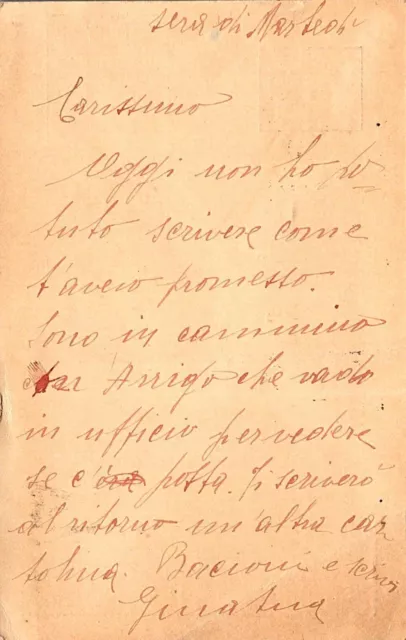 sera di Martedì
Carissimo
Oggi non ho po-
tuto scrivere come
t'avevo promesso.
Sono in cammino
con Arrigo che vado
in ufficio per vedere
se c'è posta. Ti scriverò
al ritorno un'altra car
tolina. Bacioni e scrivi